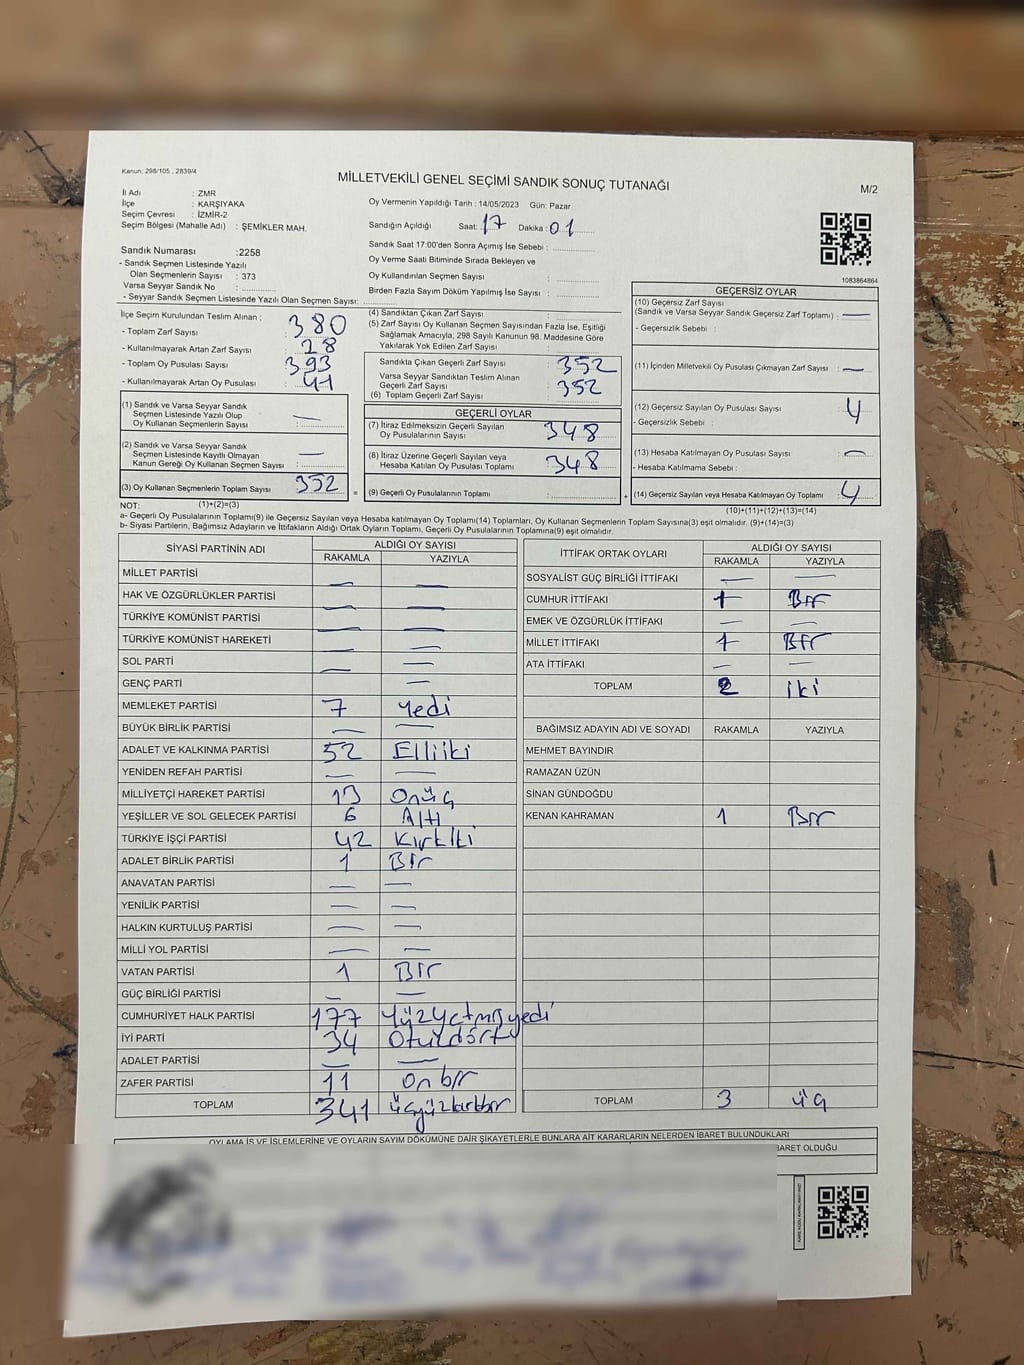 Kanun: 298/105 , 2839/4
MİLLETVEKİLİ GENEL SEÇİMİ SANDIK SONUÇ TUTANAĞI
M/2
İl Adı : ZMR
İlçe : KARŞIYAKA
Seçim Çevresi : İZMİR-2
Seçim Bölgesi (Mahalle Adı) : ŞEMİKLER MAH.
Sandık Numarası :2258
- Sandık Seçmen Listesinde Yazılı
Olan Seçmenlerin Sayısı : 373
Varsa Seyyar Sandık No :
- Seyyar Sandık Seçmen Listesinde Yazılı Olan Seçmen Sayısı:
Oy Vermenin Yapıldığı Tarih : 14/05/2023 Gün: Pazar
Sandığın Açıldığı Saat: 17 Dakika : 01
Sandık Saat 17:00'den Sonra Açımış İse Sebebi :
Oy Verme Saati Bitiminde Sırada Bekleyen ve
Oy Kullandırılan Seçmen Sayısı :
Birden Fazla Sayım Döküm Yapılmış İse Sayısı :
1083864864
İlçe Seçim Kurulundan Teslim Alınan ;
- Toplam Zarf Sayısı : 380
- Kullanılmayarak Artan Zarf Sayısı : 28
- Toplam Oy Pusulası Sayısı : 393
- Kullanılmayarak Artan Oy Pusulası : 41
(1) Sandık ve Varsa Seyyar Sandık
Seçmen Listesinde Yazılı Olup
Oy Kullanan Seçmenlerin Sayısı : —
(2) Sandık ve Varsa Seyyar Sandık
Seçmen Listesinde Kayıtlı Olmayan
Kanun Gereği Oy Kullanan Seçmen Sayısı : —
(3) Oy Kullanan Seçmenlerin Toplam Sayısı 352
(1)+(2)=(3)
(4) Sandıktan Çıkan Zarf Sayısı :
(5) Zarf Sayısı Oy Kullanan Seçmen Sayısından Fazla İse, Eşitliği
Sağlamak Amacıyla, 298 Sayılı Kanunun 98. Maddesine Göre
Yakılarak Yok Edilen Zarf Sayısı :
Sandıkta Çıkan Geçerli Zarf Sayısı : 352
Varsa Seyyar Sandıktan Teslim Alınan
Geçerli Zarf Sayısı : 352
(6) Toplam Geçerli Zarf Sayısı :
GEÇERLİ OYLAR
(7) İtiraz Edilmeksizin Geçerli Sayılan
Oy Pusulalarının Sayısı : 348
(8) İtiraz Üzerine Geçerli Sayılan veya
Hesaba Katılan Oy Pusulası Toplamı : 348
= (9) Geçerli Oy Pusulalarının Toplamı : +
GEÇERSİZ OYLAR
(10) Geçersiz Zarf Sayısı
(Sandık ve Varsa Seyyar Sandık Geçersiz Zarf Toplamı) : —
- Geçersizlik Sebebi :
(11) İçinden Milletvekili Oy Pusulası Çıkmayan Zarf Sayısı : —
(12) Geçersiz Sayılan Oy Pusulası Sayısı : 4
- Geçersizlik Sebebi :
(13) Hesaba Katılmayan Oy Pusulası Sayısı : —
- Hesaba Katılmama Sebebi :
(14) Geçersiz Sayılan veya Hesaba Katılmayan Oy Toplamı : 4
(10)+(11)+(12)+(13)=(14)
NOT:
a- Geçerli Oy Pusulasının Toplamı(9) ile Geçersiz Sayılan veya Hesaba katılmayan Oy Toplamı(14) Toplamları, Oy Kullanan Seçmenlerin Toplam Sayısına(3) eşit olmalıdır. (9)+(14)=(3)
b- Siyasi Partilerin, Bağımsız Adayların ve İttifakların Aldığı Ortak Oyların Toplamı, Geçerli Oy Pusulalarının Toplamına(9) eşit olmalıdır.
SİYASİ PARTİNİN ADI ALDIĞI OY SAYISI
RAKAMLA YAZIYLA
MİLLET PARTİSİ — —
HAK VE ÖZGÜRLÜKLER PARTİSİ — —
TÜRKİYE KOMÜNİST PARTİSİ — —
TÜRKİYE KOMÜNİST HAREKETİ — —
SOL PARTİ — —
GENÇ PARTİ —
MEMLEKET PARTİSİ 7 Yedi
BÜYÜK BİRLİK PARTİSİ — —
ADALET VE KALKINMA PARTİSİ 52 Elliiki
YENİDEN REFAH PARTİSİ — —
MİLLİYETÇİ HAREKET PARTİSİ 13 Onüç
YEŞİLLER VE SOL GELECEK PARTİSİ 6 Altı
TÜRKİYE İŞÇİ PARTİSİ 42 Kırkiki
ADALET BİRLİK PARTİSİ 1 Bir
ANAVATAN PARTİSİ — —
YENİLİK PARTİSİ — —
HALKIN KURTULUŞ PARTİSİ — —
MİLLİ YOL PARTİSİ — —
VATAN PARTİSİ 1 Bir
GÜÇ BİRLİĞİ PARTİSİ — —
CUMHURİYET HALK PARTİSİ 177 Yüzyetmişyedi
İYİ PARTİ 34 Otuzdört
ADALET PARTİSİ — —
ZAFER PARTİSİ 11 On bir
TOPLAM 341 üçyüzkırkbir
İTTİFAK ORTAK OYLARI ALDIĞI OY SAYISI
RAKAMLA YAZIYLA
SOSYALİST GÜÇ BİRLİĞİ İTTİFAKI — —
CUMHUR İTTİFAKI 1 Bir
EMEK VE ÖZGÜRLÜK İTTİFAKI — —
MİLLET İTTİFAKI 1 Bir
ATA İTTİFAKI — —
TOPLAM 2 iki
BAĞIMSIZ ADAYIN ADI VE SOYADI RAKAMLA YAZIYLA
MEHMET BAYINDIR
RAMAZAN ÜZÜN
SİNAN GÜNDOĞDU
KENAN KAHRAMAN 1 Bir
TOPLAM 3 üç
OYLAMA İŞ VE İŞLEMLERİNE VE OYLARIN SAYIM DÖKÜMÜNE DAİR ŞİKAYETLERLE BUNLARA AİT KARARLARIN NELERDEN İBARET BULUNDUKLARI
BARET OLDUĞU